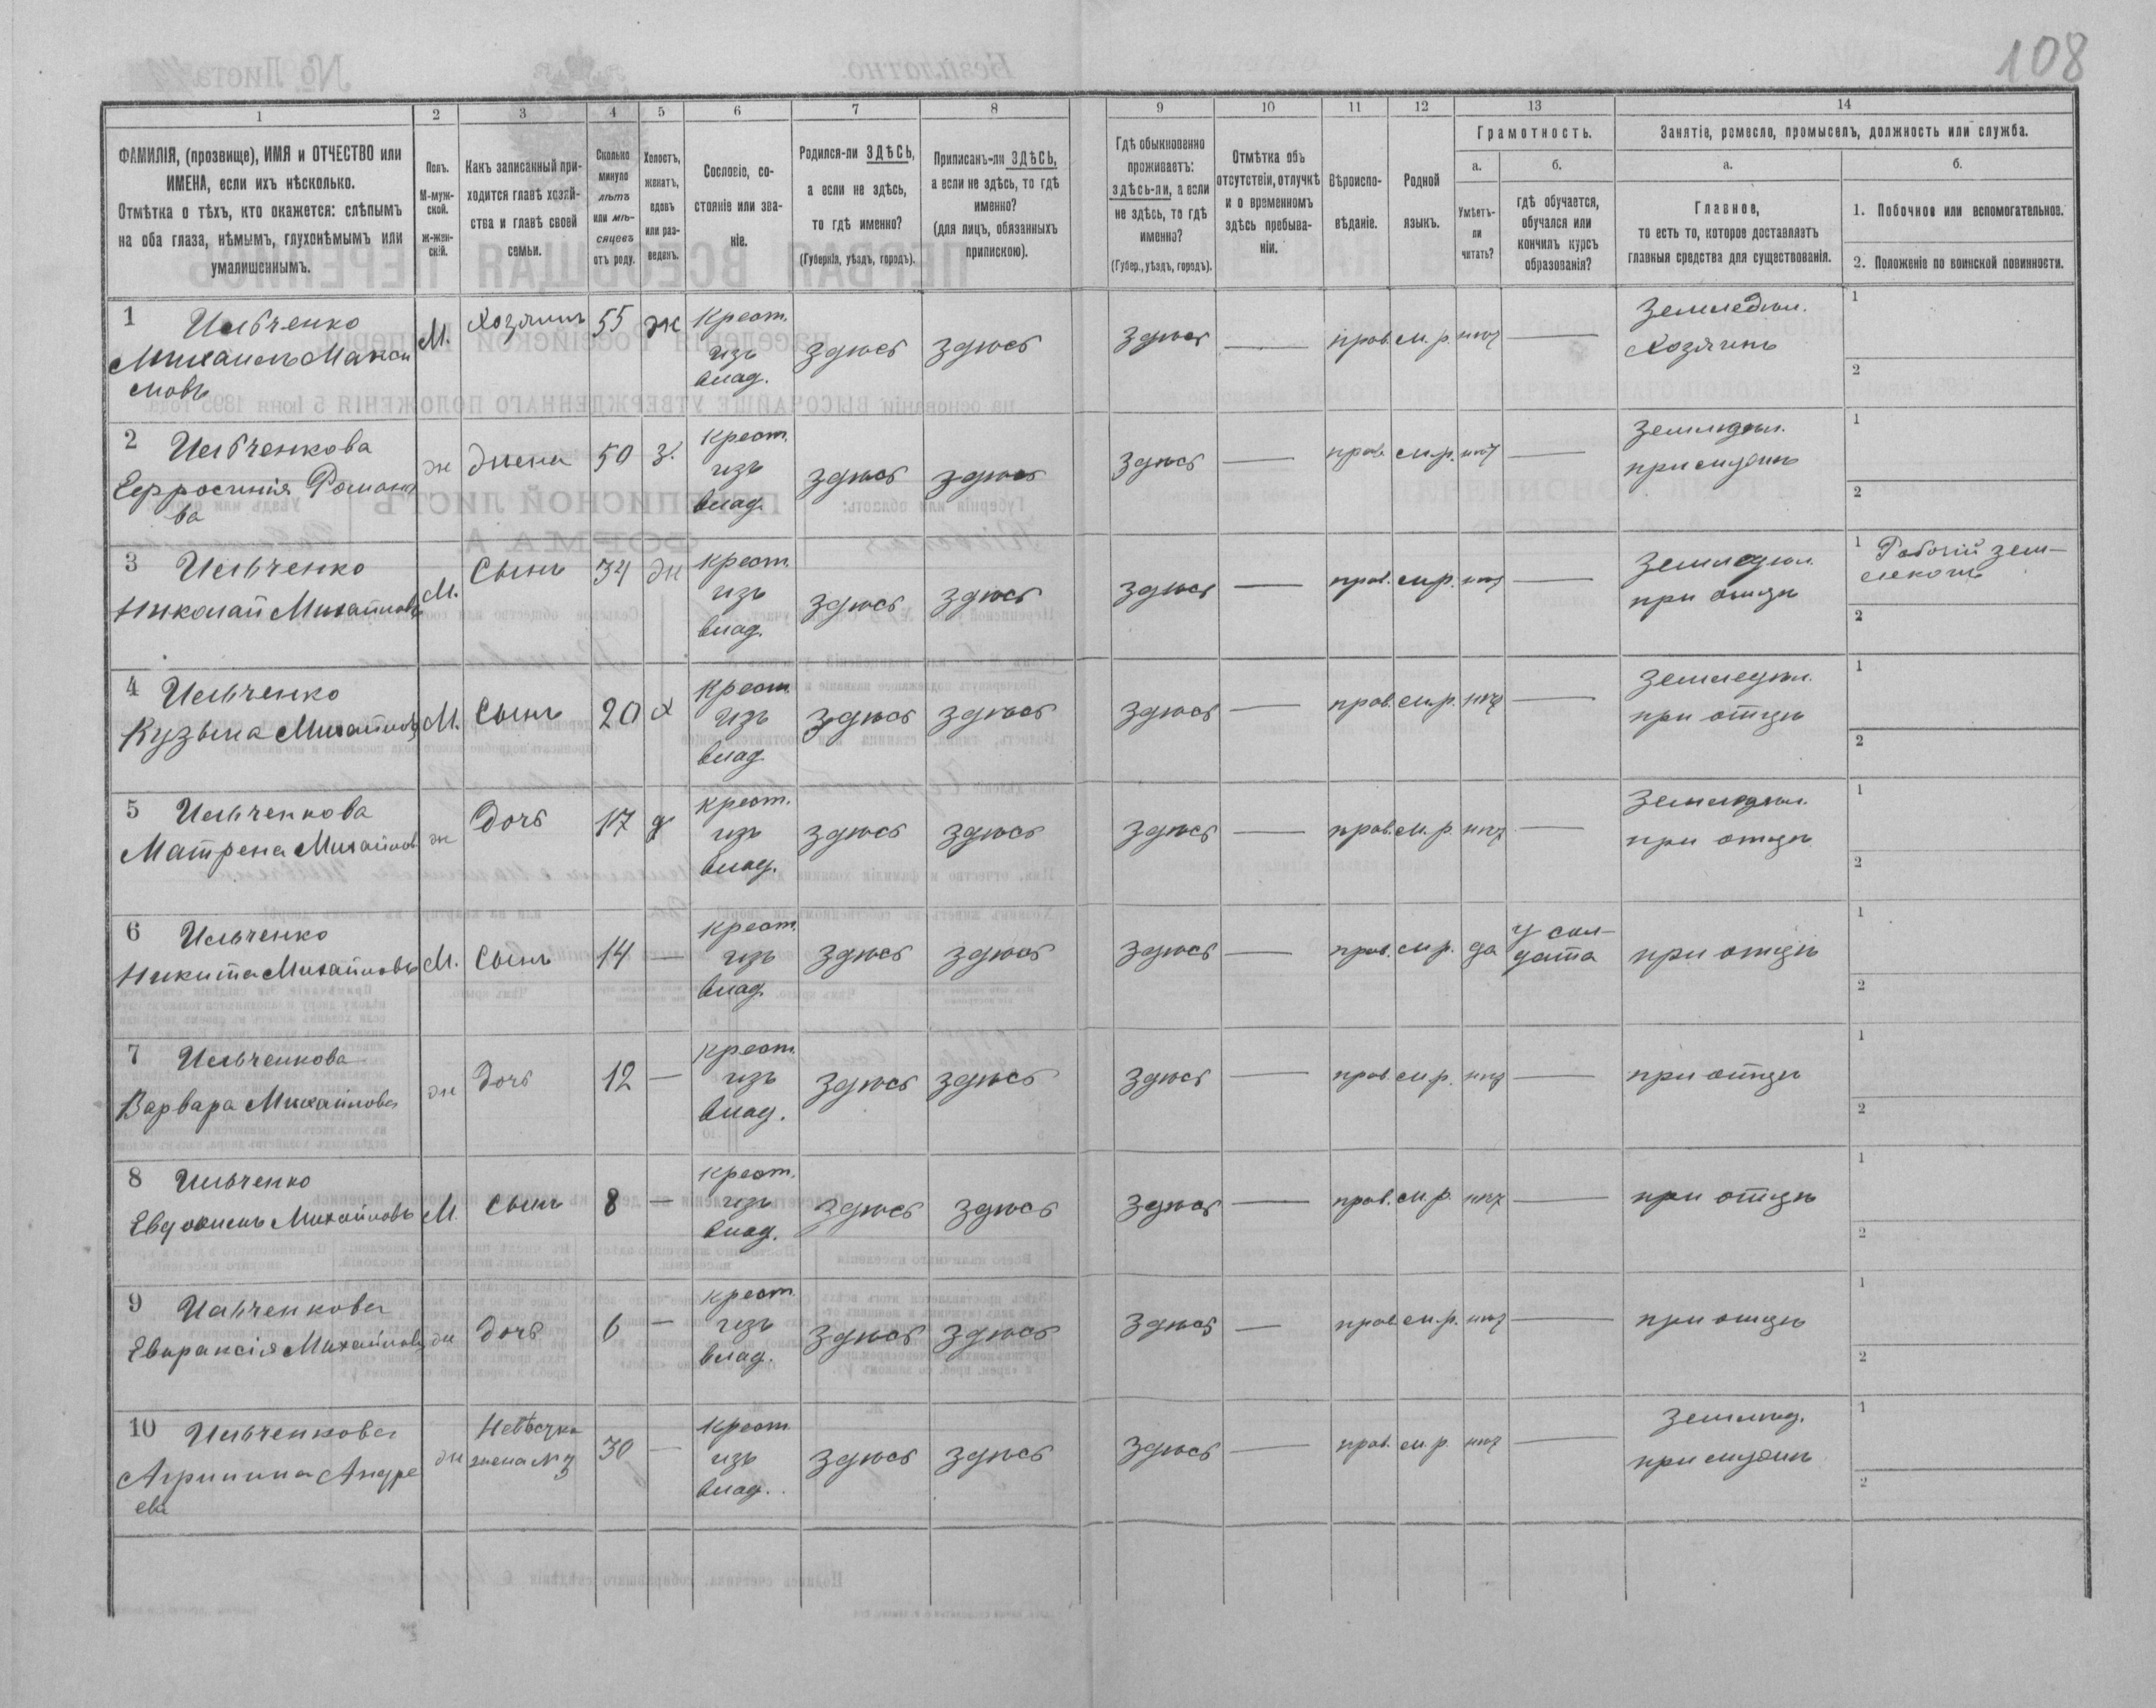 108
1 2 3 4 5 6 7 8 9 10 11 12 13 14
ФАМИЛІЯ, (прозвище), ИМЯ и ОТЧЕСТВО или ИМЕНА, если ихъ нѣсколько.
Отмѣтка о тѣхъ, кто окажется: слѣпымъ на оба глаза, нѣмымъ, глухонѣмымъ или умалишеннымъ.
Полъ. М-мужской. ж-женскій.
Какъ записанный приходится главѣ хозяйства и главѣ своей семьи.
Сколько минуло лѣтъ или мѣсяцевъ отъ роду.
Холостъ, женатъ, вдовъ или разведенъ.
Сословіе, состояніе или званіе.
Родился-ли ЗДѢСЬ, а если не здѣсь, то гдѣ именно? (Губернія, уѣздъ, городъ).
Приписанъ-ли ЗДѢСЬ, а если не здѣсь, то гдѣ именно? (для лицъ, обязанныхъ припискою).
Гдѣ обыкновенно проживаетъ: здѣсь-ли, а если не здѣсь, то гдѣ именно? (Губер., уѣздъ, городъ).
Отмѣтка объ отсутствіи, отлучкѣ и о временномъ здѣсь пребываніи.
Вѣроисповѣданіе.
Родной языкъ.
Грамотность.
а. Умѣетъ-ли читать?
б. гдѣ обучается, обучался или кончилъ курсъ образованія?
Занятіе, ремесло, промыселъ, должность или служба.
а. Главное, то есть то, которое доставляетъ главныя средства для существованія.
б. 1. Побочное или вспомогательное.
2. Положеніе по воинской повинности.
1 Ильченко Михаилъ Максимовъ М. Хозяинъ 55 ж Крест. изъ влад. здѣсь здѣсь здѣсь — прав. м.р. нѣт — Земледѣл. Хозяинъ 1 2
2 Ильченкова Ефросинія Романова ж жена 50 з. Крест. изъ влад. здѣсь здѣсь здѣсь — прав. м.р. нѣт — Земледѣл. при мужѣ 1 2
3 Ильченко Николай Михайловъ М. Сынъ 34 ж Крест. изъ влад. здѣсь здѣсь здѣсь — прав. м.р. нѣт — Земледѣл. при отцѣ 1 Рабочій зем- 2
4 Ильченко Кузьма Михайловъ М. Сынъ 20 х Крест. изъ влад. здѣсь здѣсь здѣсь — прав. м.р. нѣт — Земледѣл. при отцѣ 1 2
5 Ильченкова Матрена Михайлов ж Дочь 17 д Крест. изъ влад. здѣсь здѣсь здѣсь — прав. м.р. нѣт — Земледѣл. при отцѣ 1 2
6 Ильченко Никита Михайловъ М. Сынъ 14 — Крест. изъ влад. здѣсь здѣсь здѣсь — прав. м.р. да у солдата при отцѣ 1 2
7 Ильченкова Варвара Михайлова ж Дочь 12 — Крест. изъ влад. здѣсь здѣсь здѣсь — прав. м.р. нѣт — при отцѣ 1 2
8 Ильченко Евдокимъ Михайловъ М. Сынъ 8 — Крест. изъ влад. здѣсь здѣсь здѣсь — прав. м.р. нѣт — при отцѣ 1 2
9 Ильченкова Евпраксія Михайлова ж Дочь 6 — Крест. изъ влад. здѣсь здѣсь здѣсь — прав. м.р. нѣт — при отцѣ 1 2
10 Ильченкова Агрипина Андреева ж Невѣстка жена №3 30 — Крест. изъ влад. здѣсь здѣсь здѣсь — прав. м.р. нѣт — Землед. при мужѣ 1 2